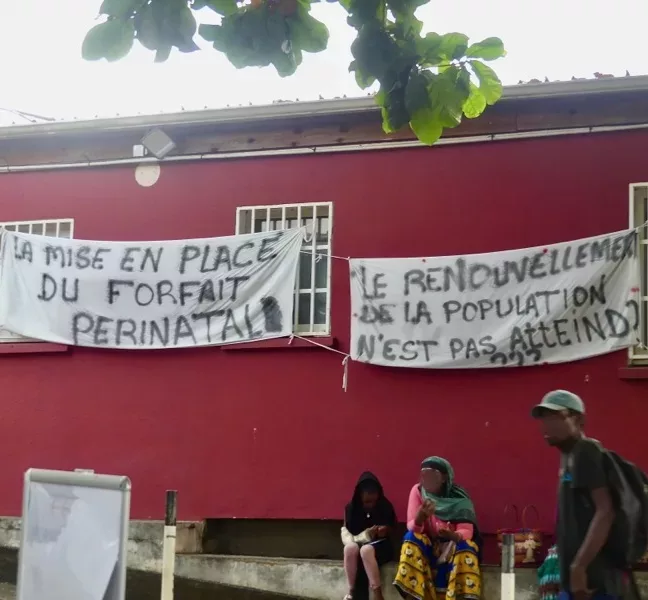 LA MISE EN PLACE
DU FORFAIT
PERINATAL
LE RENOUVELLEMEN
DE LA POPULATION
N'EST PAS ATTEIND
???